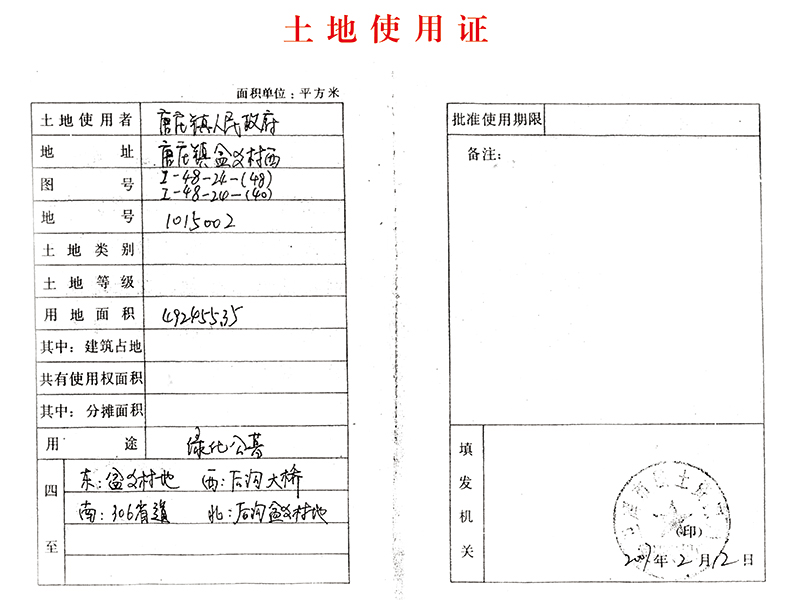 土地使用证
面积单位：平方米
土地使用者 唐庄镇人民政府
地址 唐庄镇盆义村西
图号 I-48-24-(48)
I-48-24-(40)
地号 1015002
土地类别
土地等级
用地面积
其中：建筑占地
共有使用权面积
其中：分摊面积
用途 绿化公墓
四至
东：盆义村地 西：后沟大桥
南：306省道 北：后沟盆义村地
批准使用期限
备注：
填发机关
（印）
年2月12日